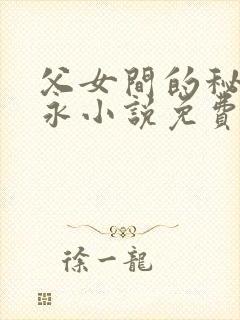 父女間的秘
永小說免費
徐一龍